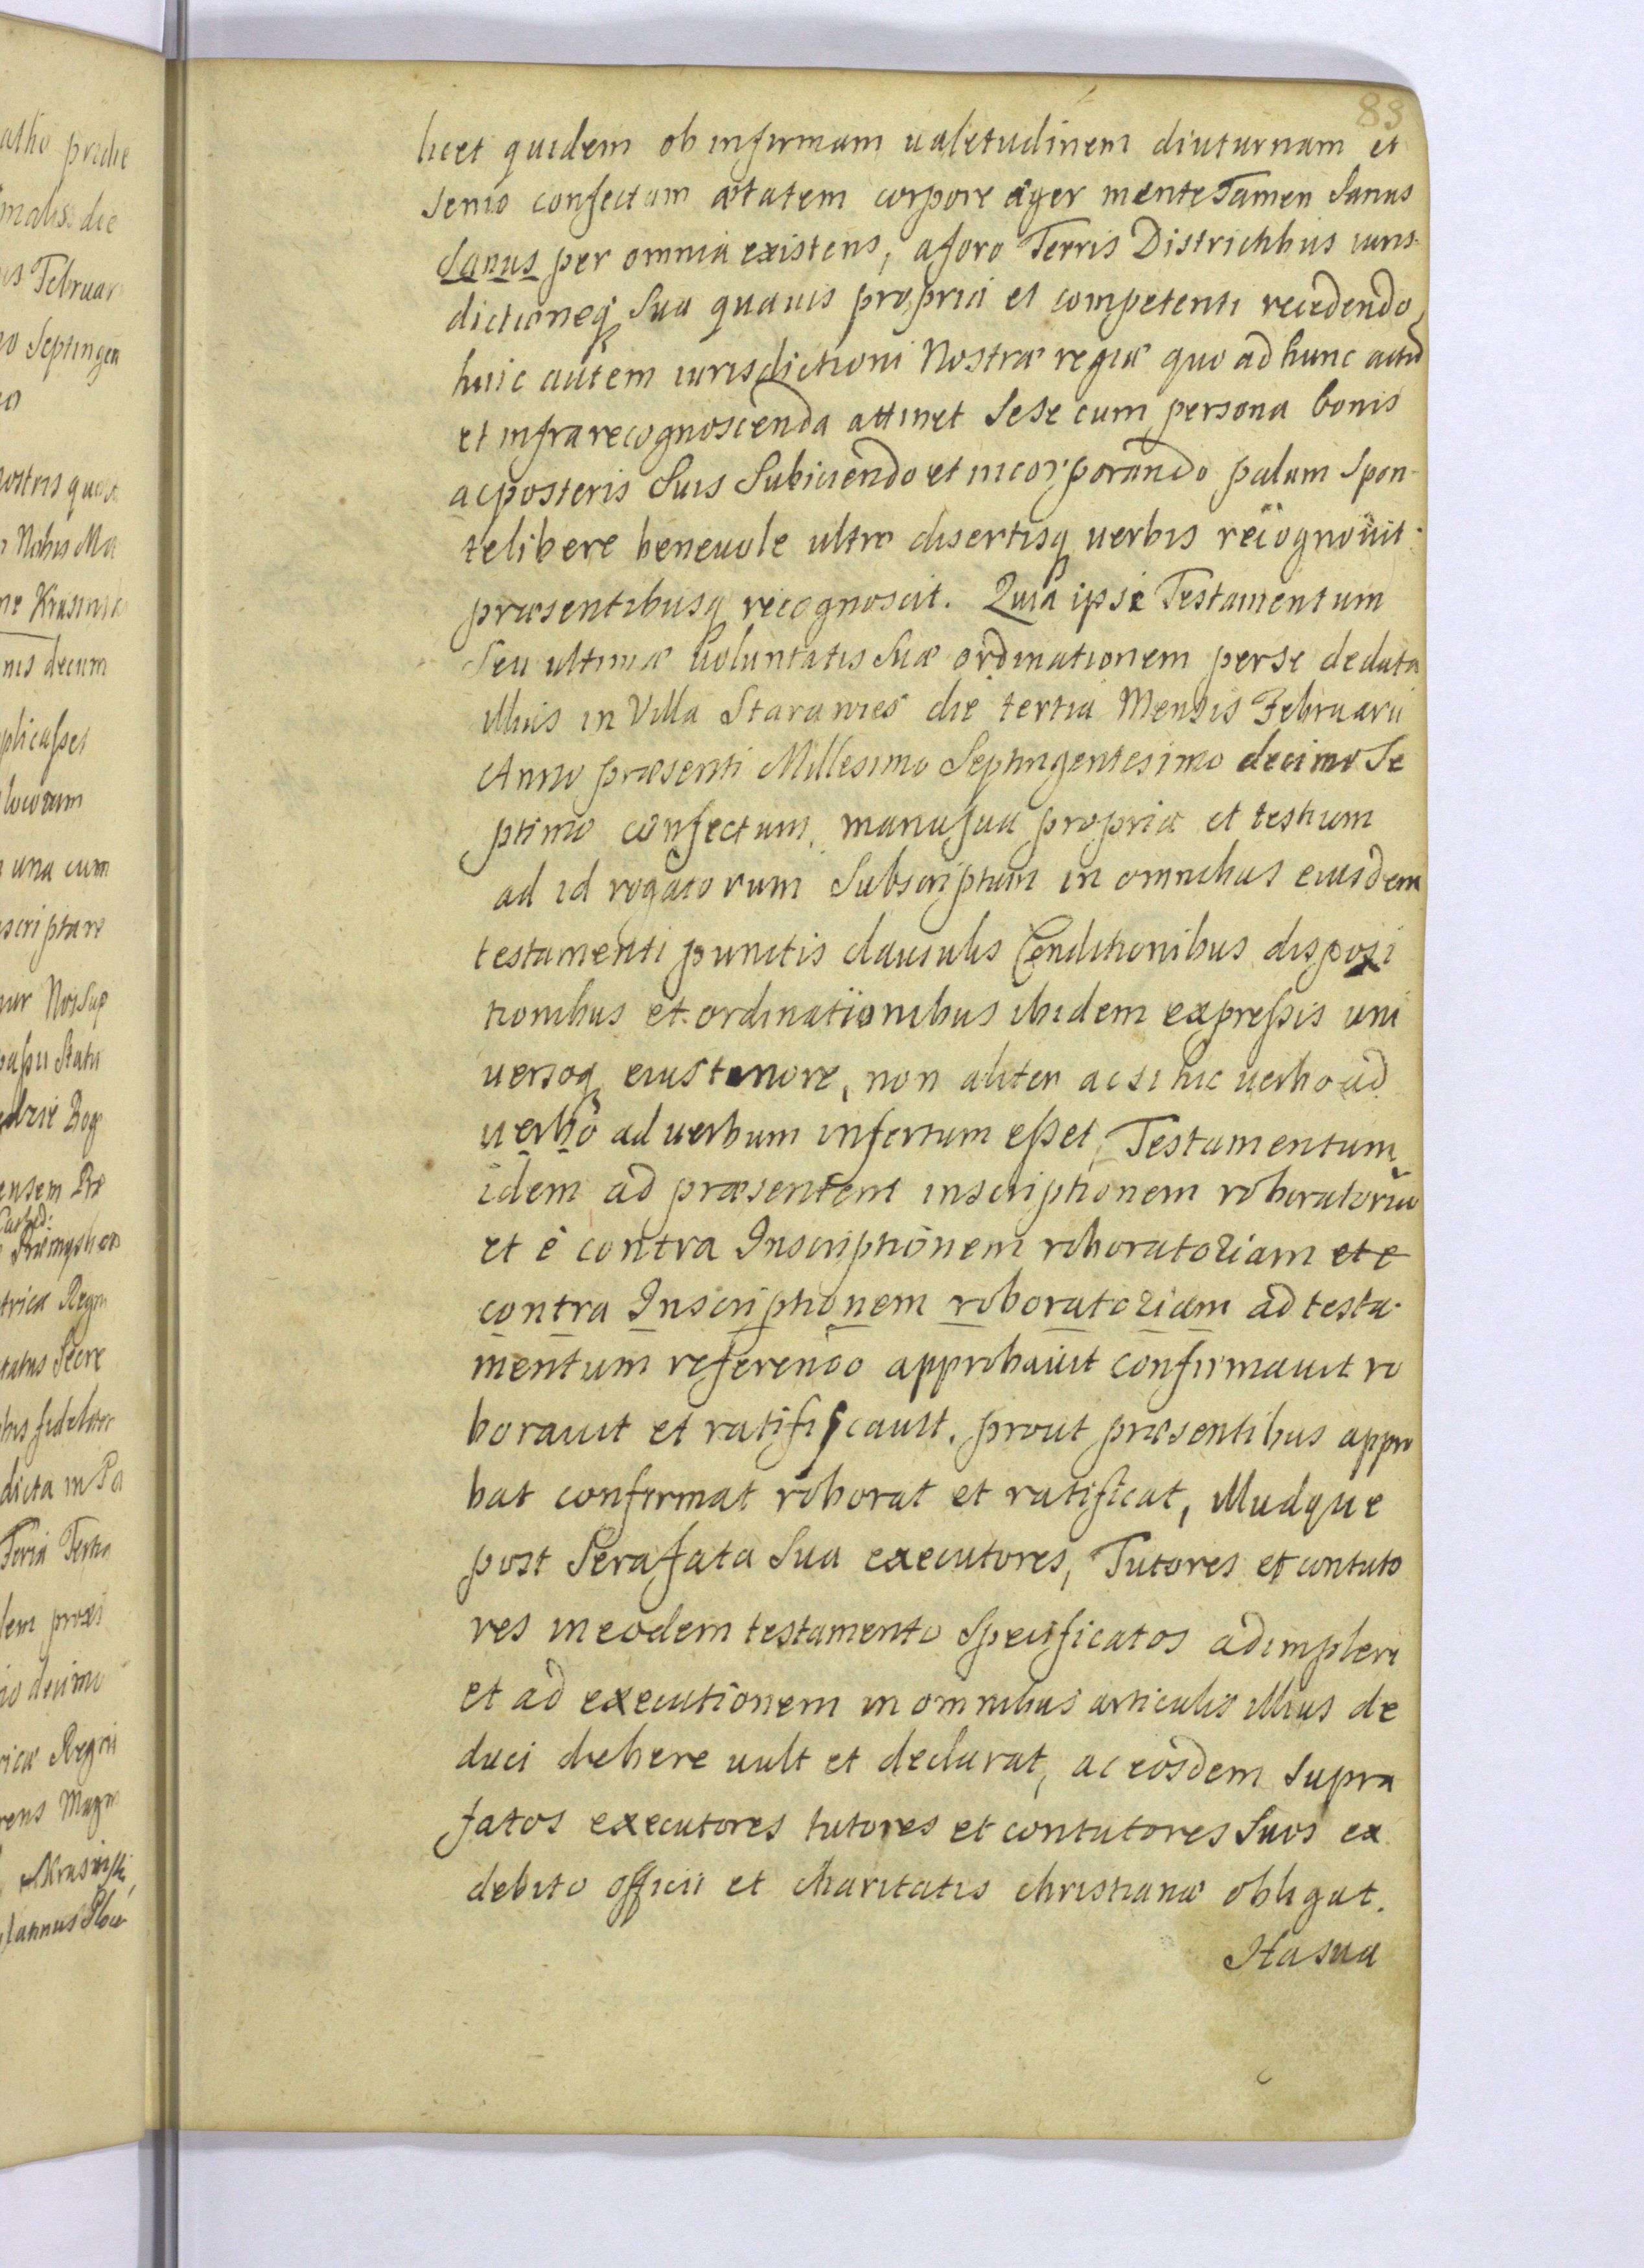 83
licet quidem ob infirmam ualetudinem diuturnam et
senio confectam ætatem corpore æger mente Tamen Sanus
Sanus per omnia existens, a foro Terris Districtibus iuris-
dictioneq Sua quauis propria et competenti recedendo,
huic autem iurisdictioni Nostræ regiæ quo ad hunc actu
et infra recognoscenda attinet Sese cum persona bonis
ac posteris Suis Subiiciendo et incorporando palam Spon-
te libere beneuole ultro disertisq uerbis recognouit
præsentibusq recognoscit. Quia ipse Testamentum
Seu ultimæ Voluntatis Suæ ordinationem per se de data
illius in Villa Starawies die tertia Mensis Februarii
Anno præsenti Millesimo Septingentesimo decimo Se
ptimo confectum, manu sua propria et testium
ad id rogatorum Subscriptum in omnibus eiusdem
testamenti punctis clausulis Conditionibus disposi
tionibus et ordinationibus ibidem expressis uni
uersoq eius tenore, non aliter ac si hic uerbo ad
uerbo ad uerbum insertum esset, Testamentum
idem ad præsentem inscriptionem roboratoriã
et è contra Inscriptionem roboratoriam et e
contra Inscriptionem roboratoriam ad testa-
mentum referendo approbauit confirmauit ro
borauit et ratificauit. prout præsentibus appro
bat confirmat roborat et ratificat, illudque
post Sera fata Sua executores, Tutores et contuto
res in eodem testamento Specificatos adimpleri
et ad executionem in omnibus articulis illius de
duci debere uult et declarat, ac eosdem supra
fatos executores tutores et contutores Suos ex
debito officii et charitatis christianæ obligat.
Ita sua